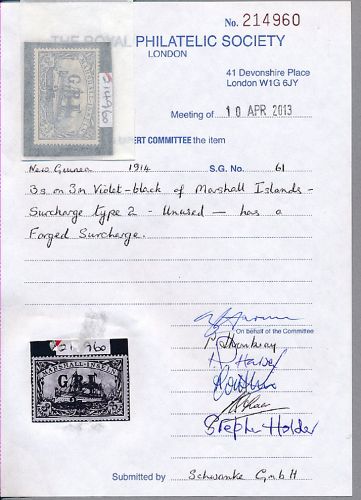 No. 214960
THE ROYAL PHILATELIC SOCIETY
LONDON
41 Devonshire Place
London W1G 6JY
Meeting of 10 APR 2013
214960
G.R.I.
EXPERT COMMITTEE the item
New Guinea 1914 S.G. No. 61
3s on 3m Violet-black of Marshall Islands -
Surcharge type 2 - Unused — has a
Forged Surcharge.
On behalf of the Committee
214960
MARSHALL-INSELN
G.R.I.
Stephen Holder
Submitted by Schwanke GmbH